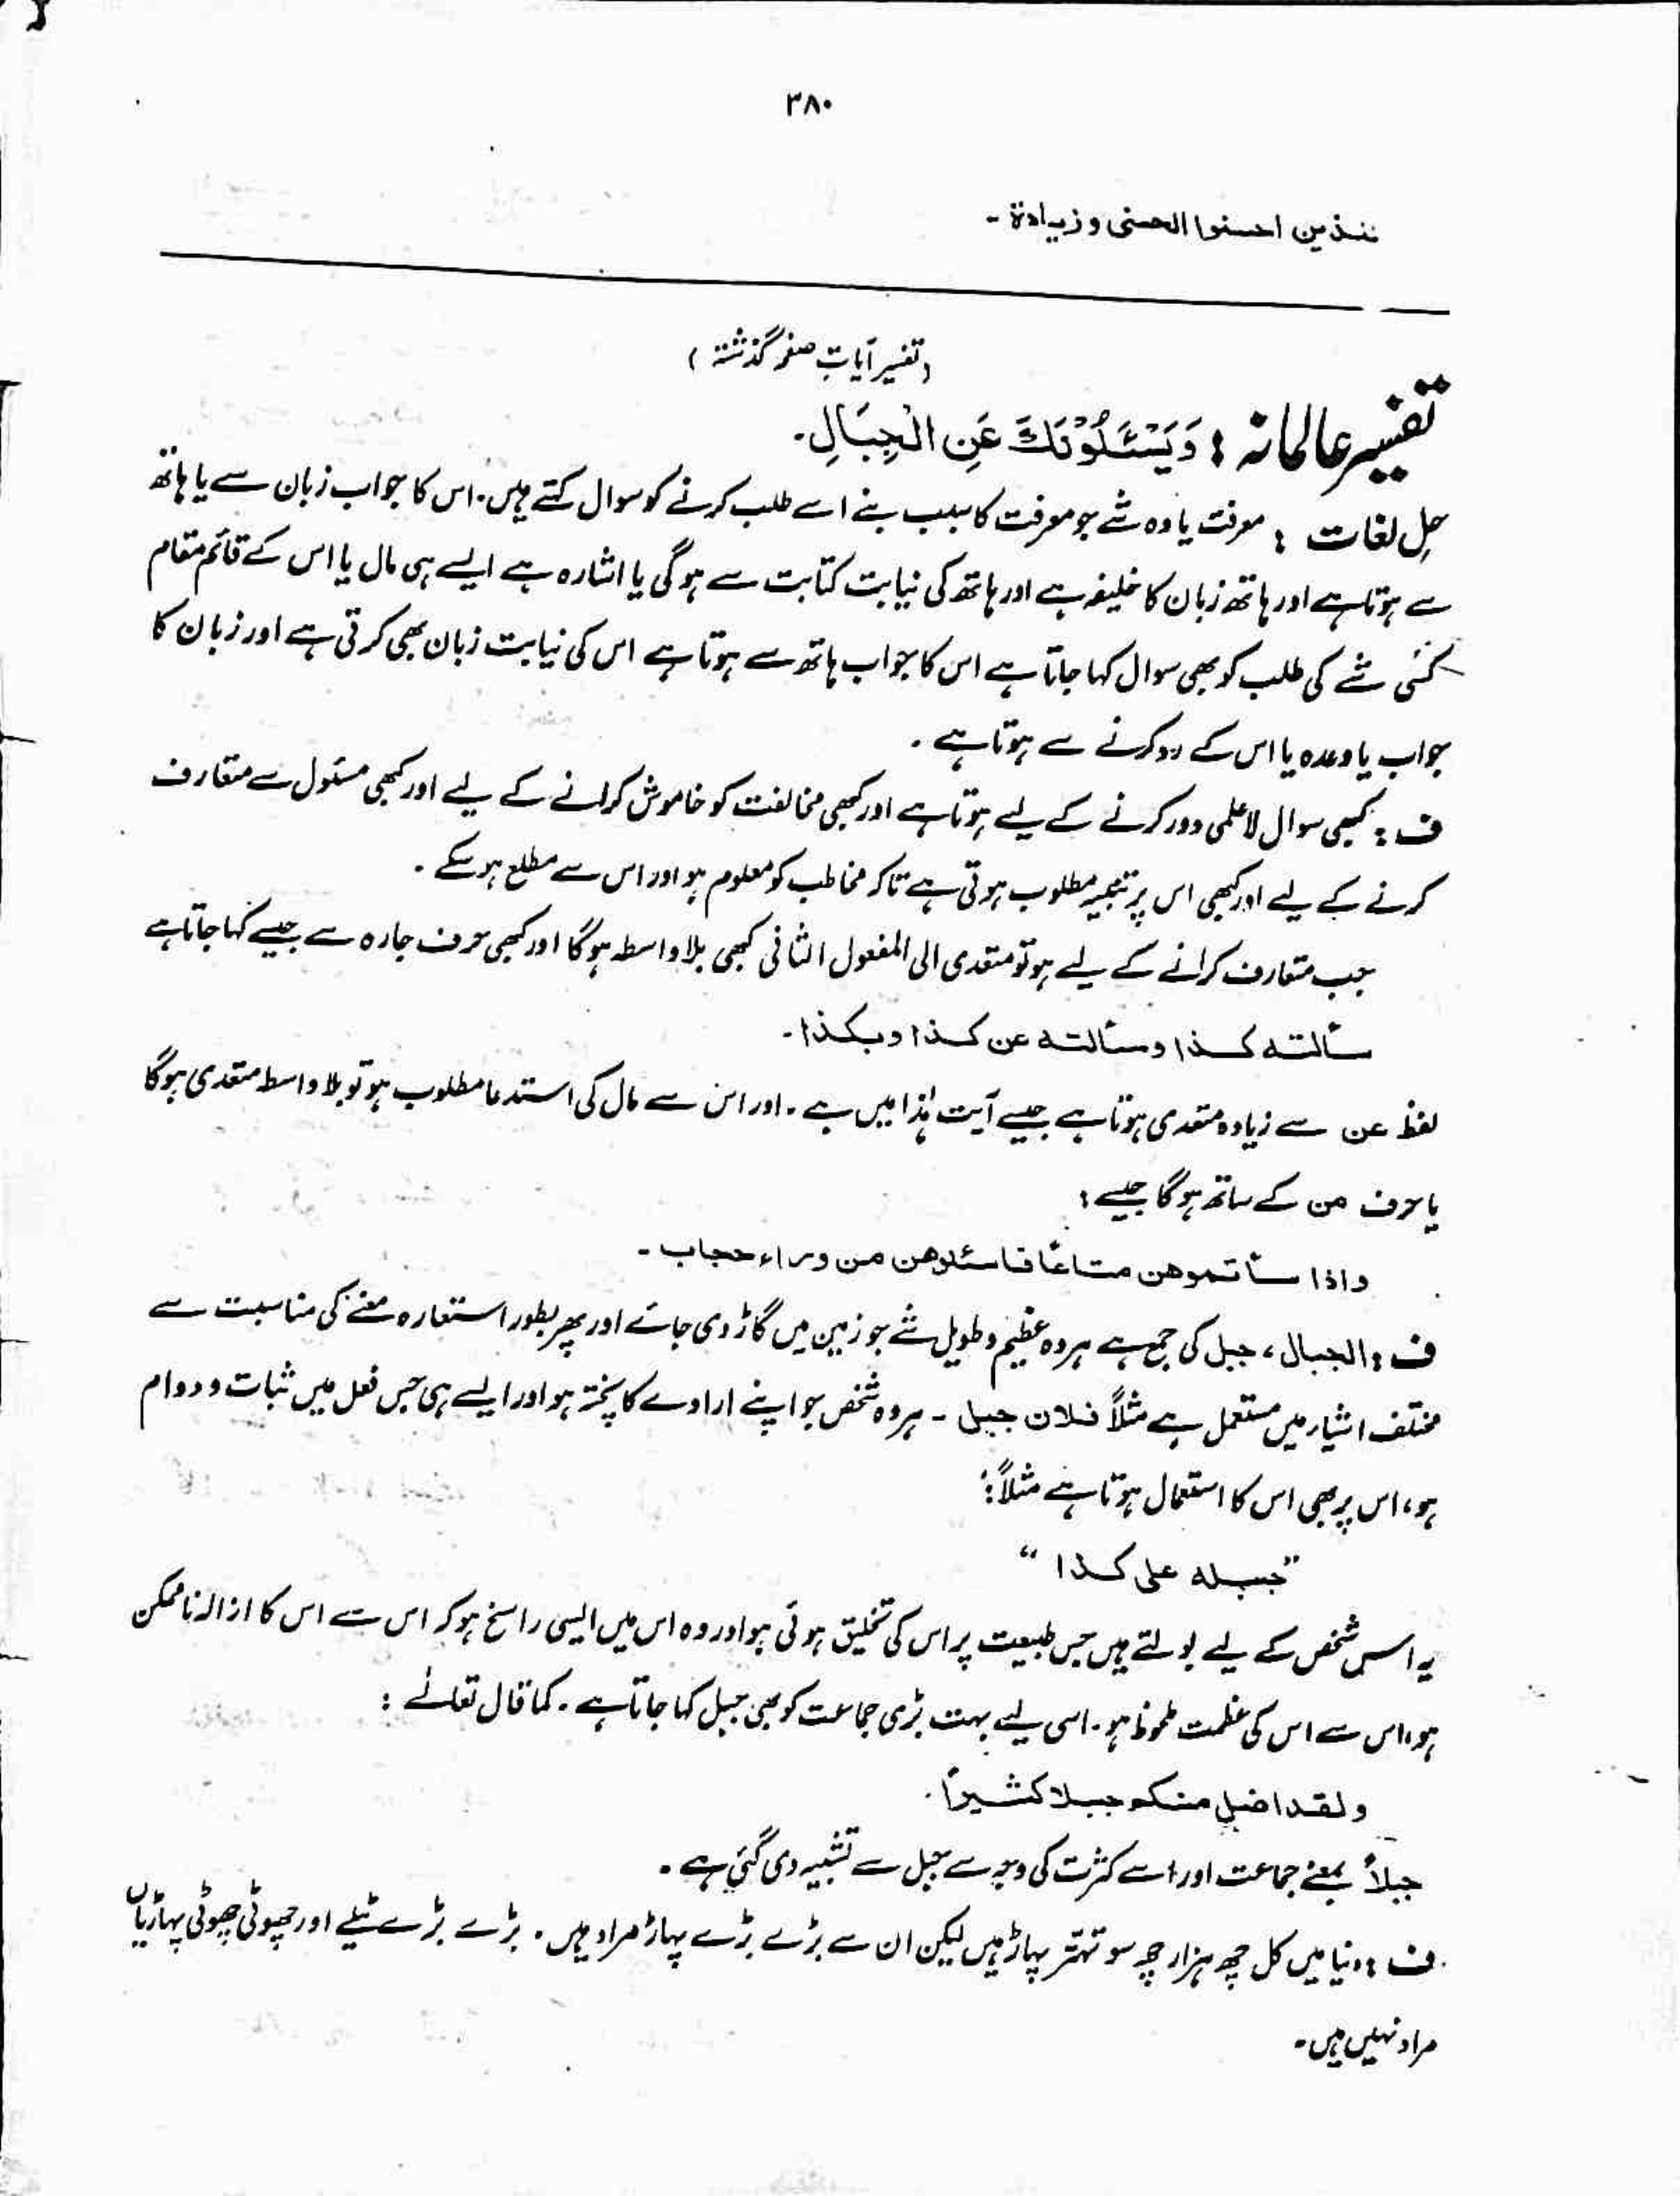 ۳۸۰
للذین احسنوا الحسنی و زیادۃ -
(تفسیر آیاتِ صفحہ گذشتہ)
تفسیر عالمانہ : وَیَسْئَلُوْنَكَ عَنِ الْجِبَالِ.
حل لغات : معرفت یا وہ شے جو معرفت کا سبب بنے اسے طلب کرنے کو سوال کہتے ہیں. اس کا جواب زبان سے یا ہاتھ
سے ہوتا ہے اور ہاتھ زبان کا خلیفہ ہے اور ہاتھ کی نیابت کتابت سے ہوگی یا اشارہ ہے ایسے ہی مال یا اس کے قائم مقام
کسی شے کی طلب کو بھی سوال کہا جاتا ہے اس کا جواب ہاتھ سے ہوتا ہے اس کی نیابت زبان بھی کرتی ہے اور زبان کا
جواب یا وعدہ یا اس کے رد کرنے سے ہوتا ہے .
ف : کبھی سوال لاعلمی دور کرنے کے لیے ہوتا ہے اور کبھی مخالفت کو خاموش کرانے کے لیے اور کبھی مسئول سے متعارف
کرنے کے لیے اور کبھی اس پر تنبیہ مطلوب ہوتی ہے تاکہ مخاطب کو معلوم ہو اور اس سے مطلع ہو سکے .
جب متعارف کرانے کے لیے ہو تو متعدی الی المفعول الثانی کبھی بلا واسطہ ہوگا اور کبھی حرف جارہ سے جیسے کہا جاتا ہے
سألتہ کذا و سألتہ عن کذا و بکذا -
لفظ عن سے زیادہ متعدی ہوتا ہے جیسے آیت ہٰذا میں ہے . اور اس سے مال کی استدعا مطلوب ہو تو بلا واسطہ متعدی ہوگا
یا حرف من کے ساتھ ہوگا جیسے :
واذا سألتموهن متاعًا فاسئلوهن من وراء حجاب -
ف : الجبال ، جبل کی جمع ہے ہر وہ عظیم و طویل شے جو زمین میں گاڑ دی جائے اور پھر بطور استعارہ معنے کی مناسبت سے
مختلف اشیاء میں مستعمل ہے مثلاً فلان جبل - ہر وہ شخص جو اپنے ارادے کا پختہ ہو اور ایسے ہی جس فعل میں ثبات و دوام
ہو ، اس پر بھی اس کا استعمال ہوتا ہے مثلاً :
"جبلہ علی کذا "
یہ اس شخص کے لیے بولتے ہیں جس طبیعت پر اس کی تخلیق ہوئی ہو اور وہ اس میں ایسی راسخ ہو کہ اس سے اس کا ازالہ ناممکن
ہو ، اس سے اس کی عظمت ملحوظ ہو . اسی لیے بہت بڑی جماعت کو بھی جبل کہا جاتا ہے . کما قال تعالٰے :
ولقد اضل منکم جبلا کثیرًا .
جبلاً بمعنے جماعت اور اسے کثرت کی وجہ سے جبل سے تشبیہ دی گئی ہے .
ف : دنیا میں کل چھ ہزار چھ سو تہتّر پہاڑ ہیں لیکن ان سے بڑے بڑے پہاڑ مراد ہیں . بڑے بڑے ٹیلے اور چھوٹی چھوٹی پہاڑیاں
مراد نہیں ہیں -